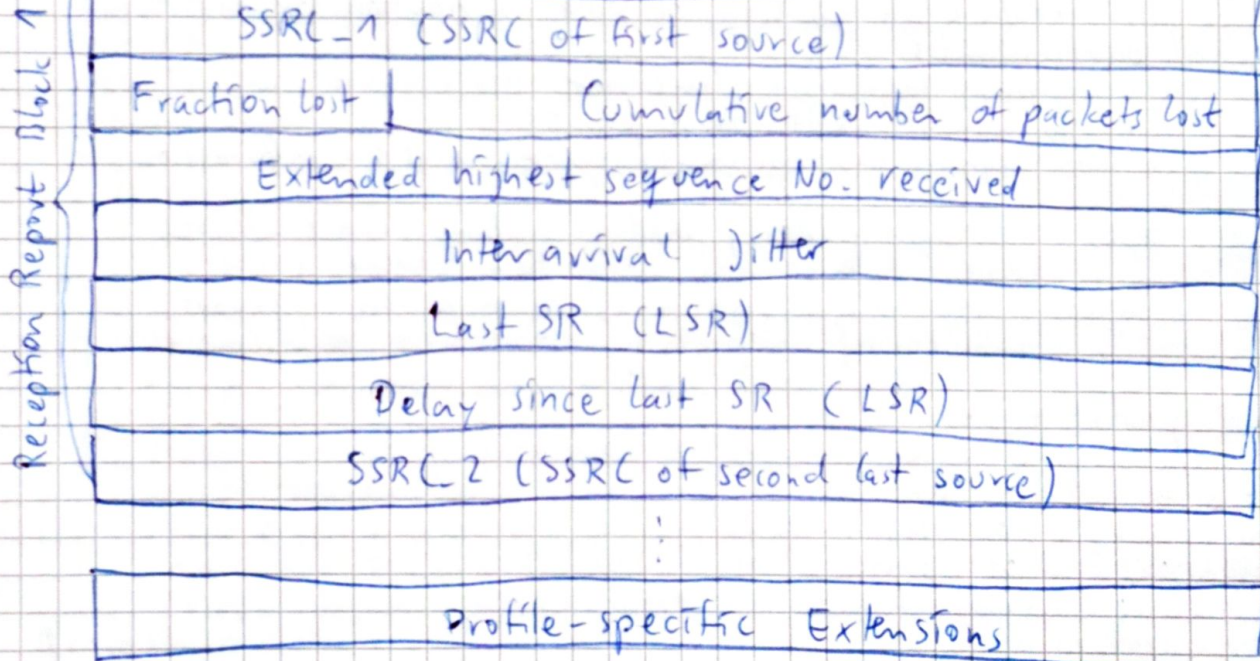 Reception Report Block 1
SSRC_1 (SSRC of first source)
Fraction lost Cumulative number of packets lost
Extended highest sequence No. received
Interarrival Jitter
Last SR (LSR)
Delay since last SR (LSR)
SSRC_2 (SSRC of second last source)
⋮
Profile-specific Extensions